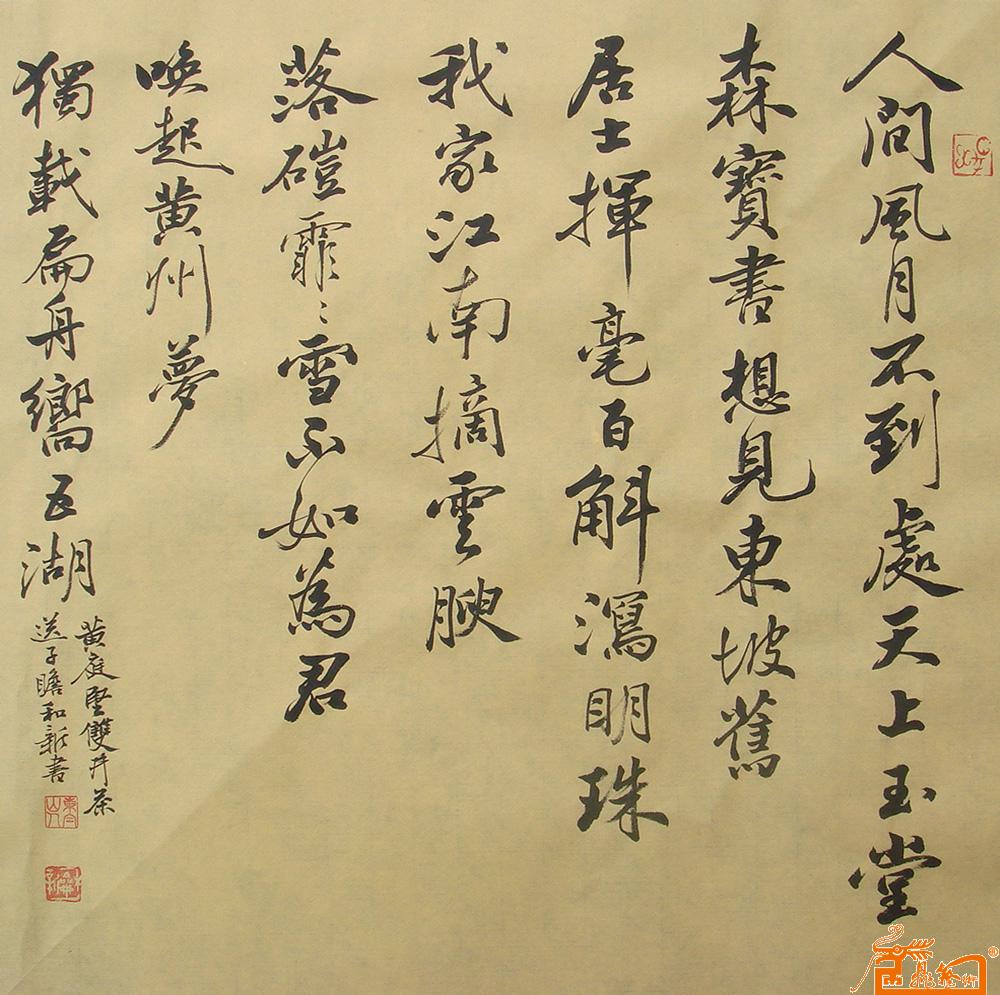 人間風月不到處天上玉堂
森寶書想見東坡舊
居士揮毫百斛瀉明珠
我家江南摘雲腴
落磑霏〻雪不如為君
喚起黄州夢
獨載扁舟嚮五湖
黄庭堅雙井茶
送子瞻和新書